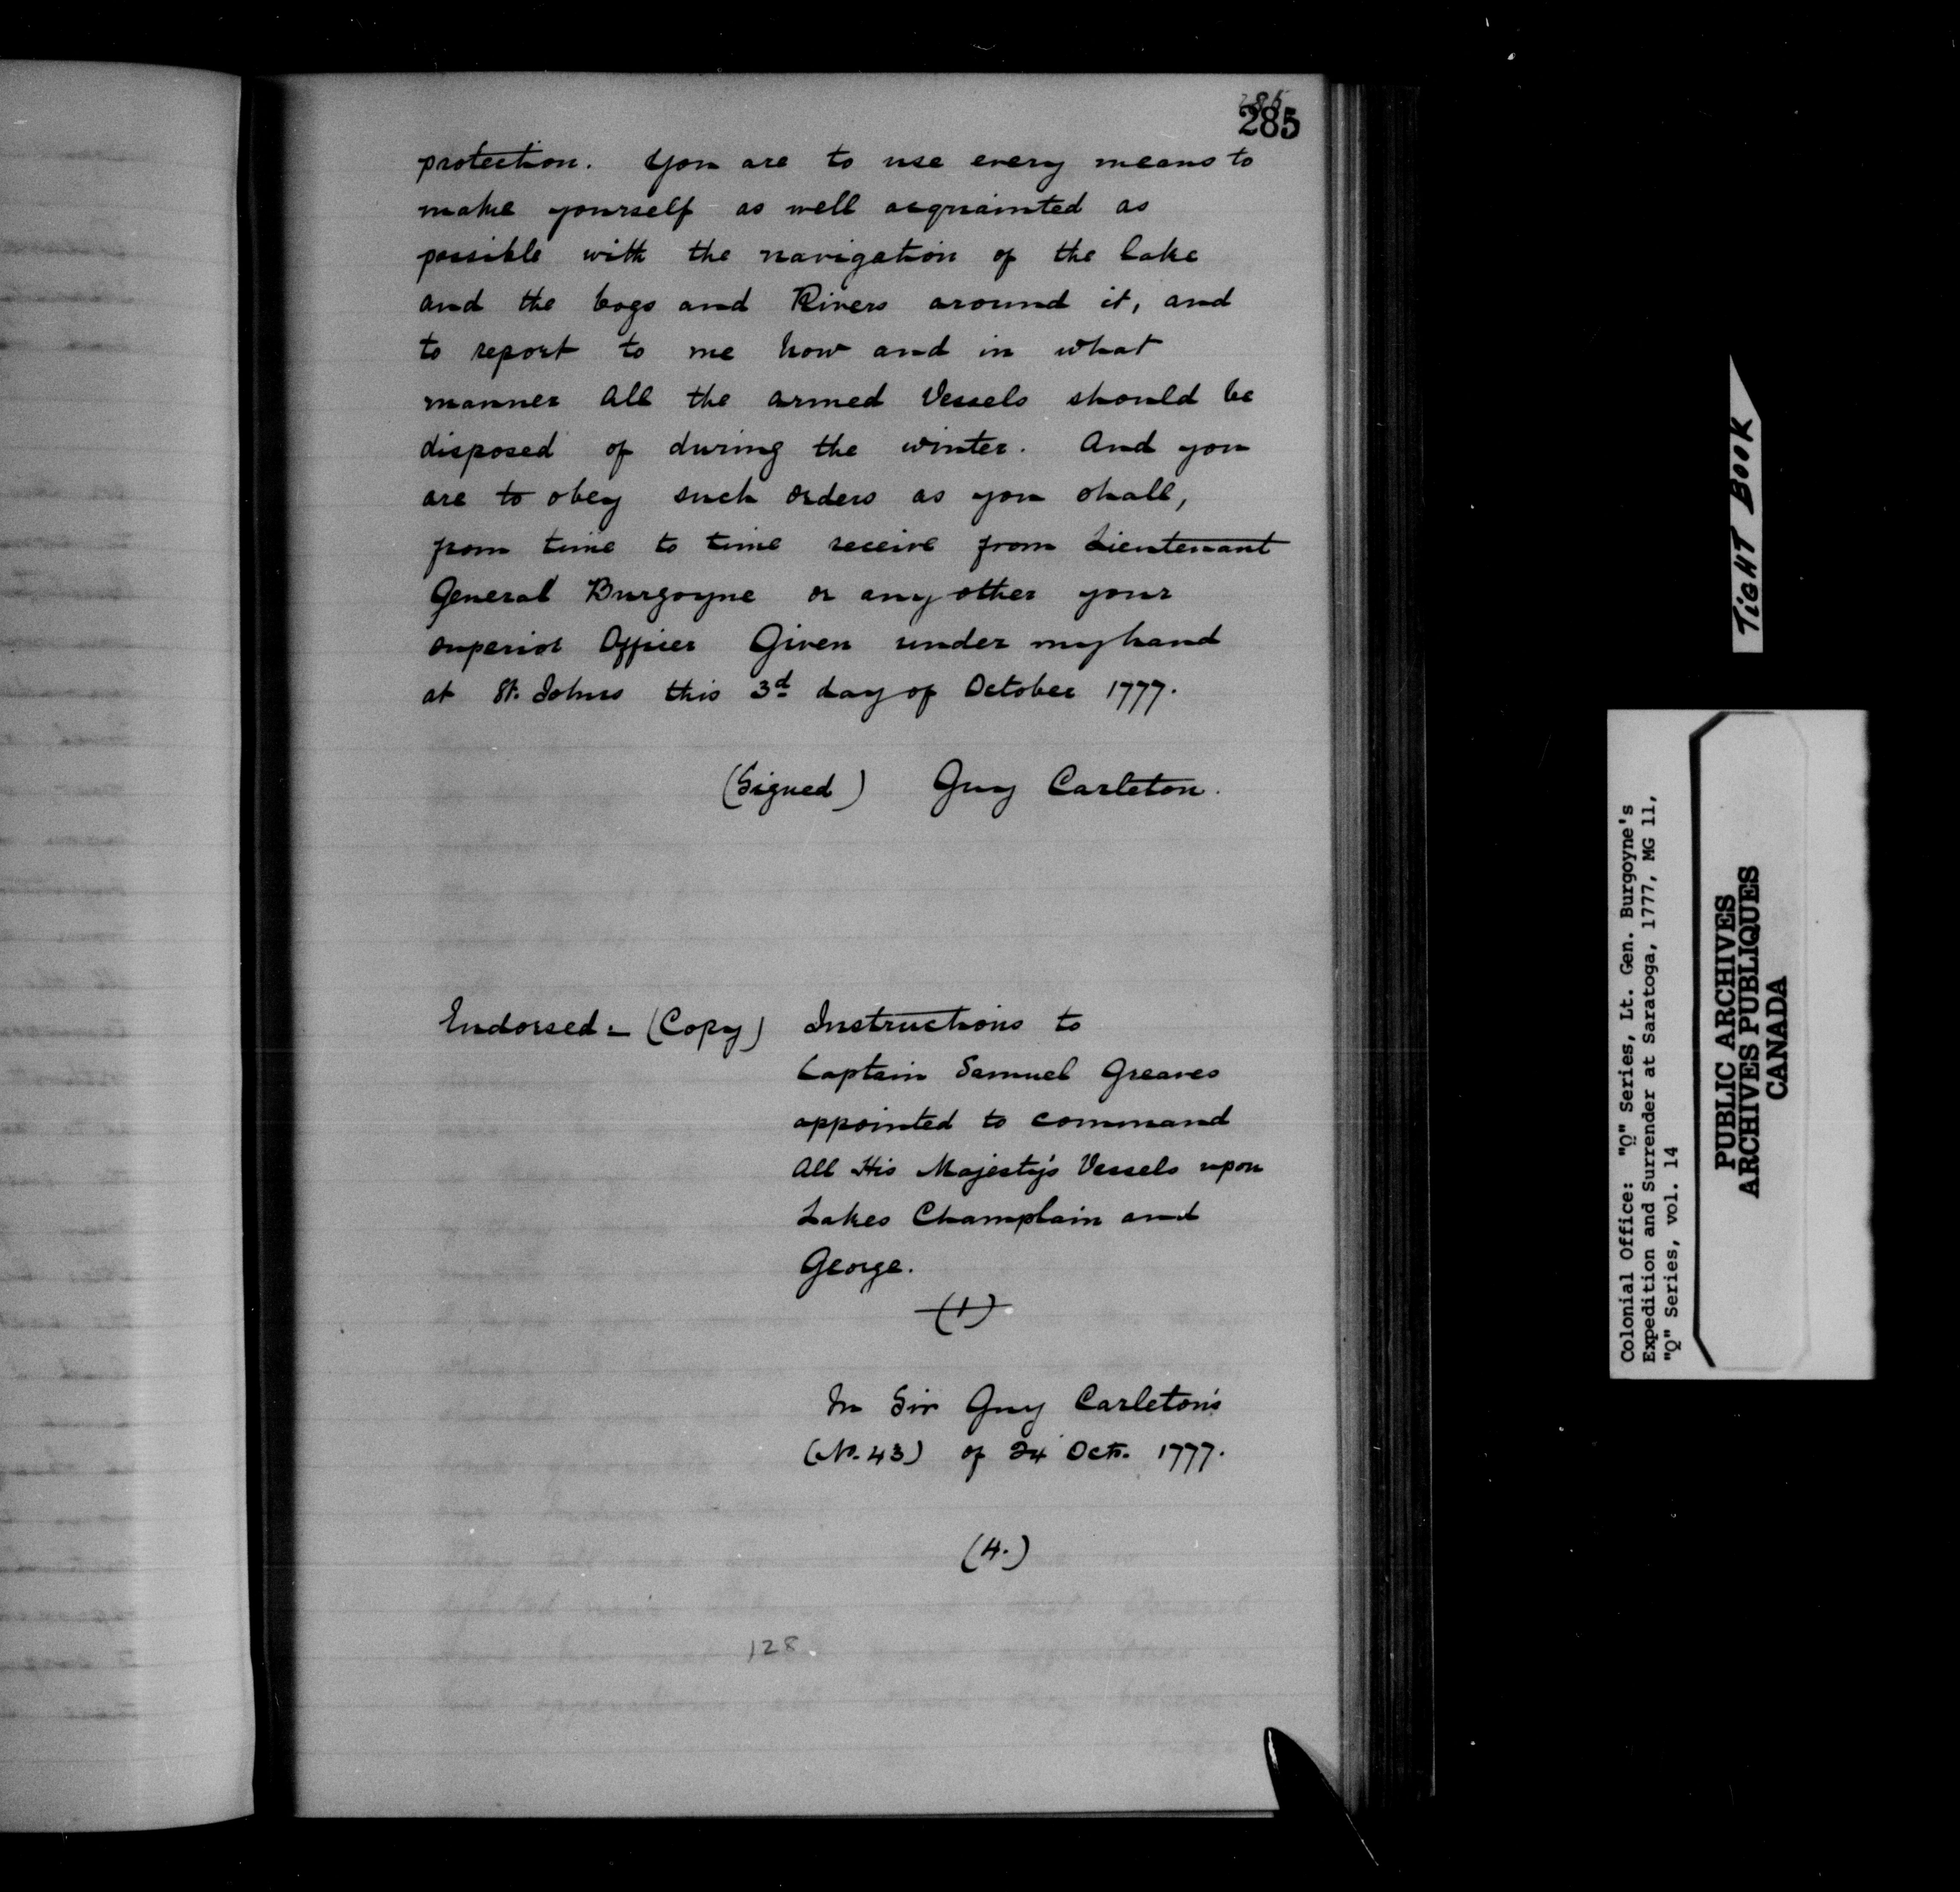 285
285
protection. You are to use every means to
make yourself as well acquainted as
possible with the navigation of the lake
and the bogs and Rivers around it, and
to report to me how and in what
manner all the armed Vessels should be
disposed of during the winter. And you
are to obey such orders as you shall,
from time to time receive from Lieutenant
General Burgoyne or any other your
superior Officer Given under my hand
at St. Johns this 3d day of October 1777.
(Signed) Guy Carleton.
Endorsed:- (Copy) Instructions to
Captain Samuel Greaves
appointed to command
all His Majesty's Vessels upon
Lakes Champlain and
George.
(1)
In Sir Guy Carleton's
(No. 43) of 24 Octr. 1777.
(4.)
128.
TIGHT BOOK
Colonial Office: "Q" Series, Lt. Gen. Burgoyne's
Expedition and Surrender at Saratoga, 1777, MG 11,
"Q" Series, vol. 14
PUBLIC ARCHIVES
ARCHIVES PUBLIQUES
CANADA